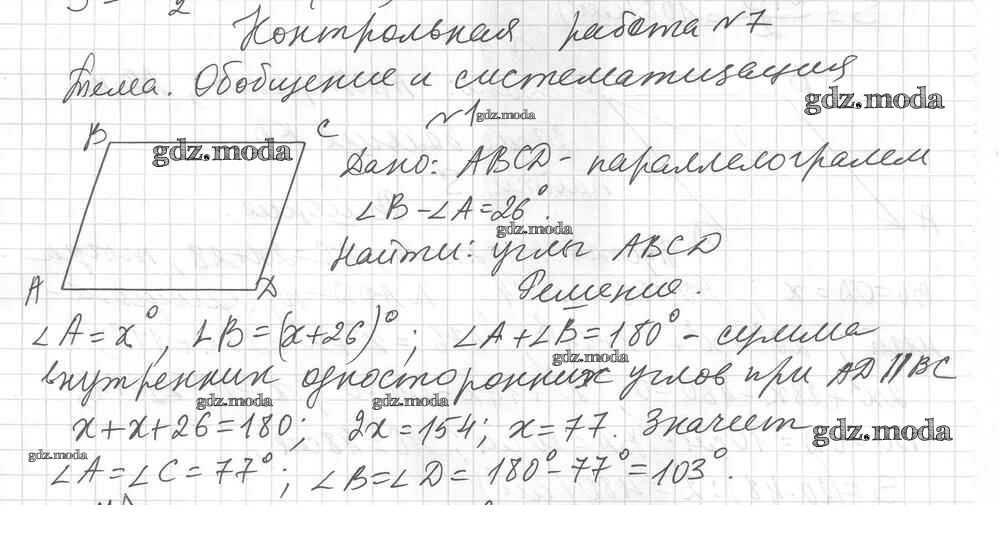 Контрольная работа №7
Тема. Обобщение и систематизация
gdz.moda
№1
gdz.moda
B
C
gdz.moda
Дано: ABCD - параллелограмм
∠B-∠A=26°.
gdz.moda
Найти: углы ABCD
A
D
Решение.
∠A=x°, ∠B=(x+26)°; ∠A+∠B=180° - сумма
gdz.moda
внутренних односторонних углов при AD||BC
gdz.moda
gdz.moda
x+x+26=180; 2x=154; x=77. Значет
gdz.moda
gdz.moda
∠A=∠C=77°; ∠B=∠D=180°-77°=103°.